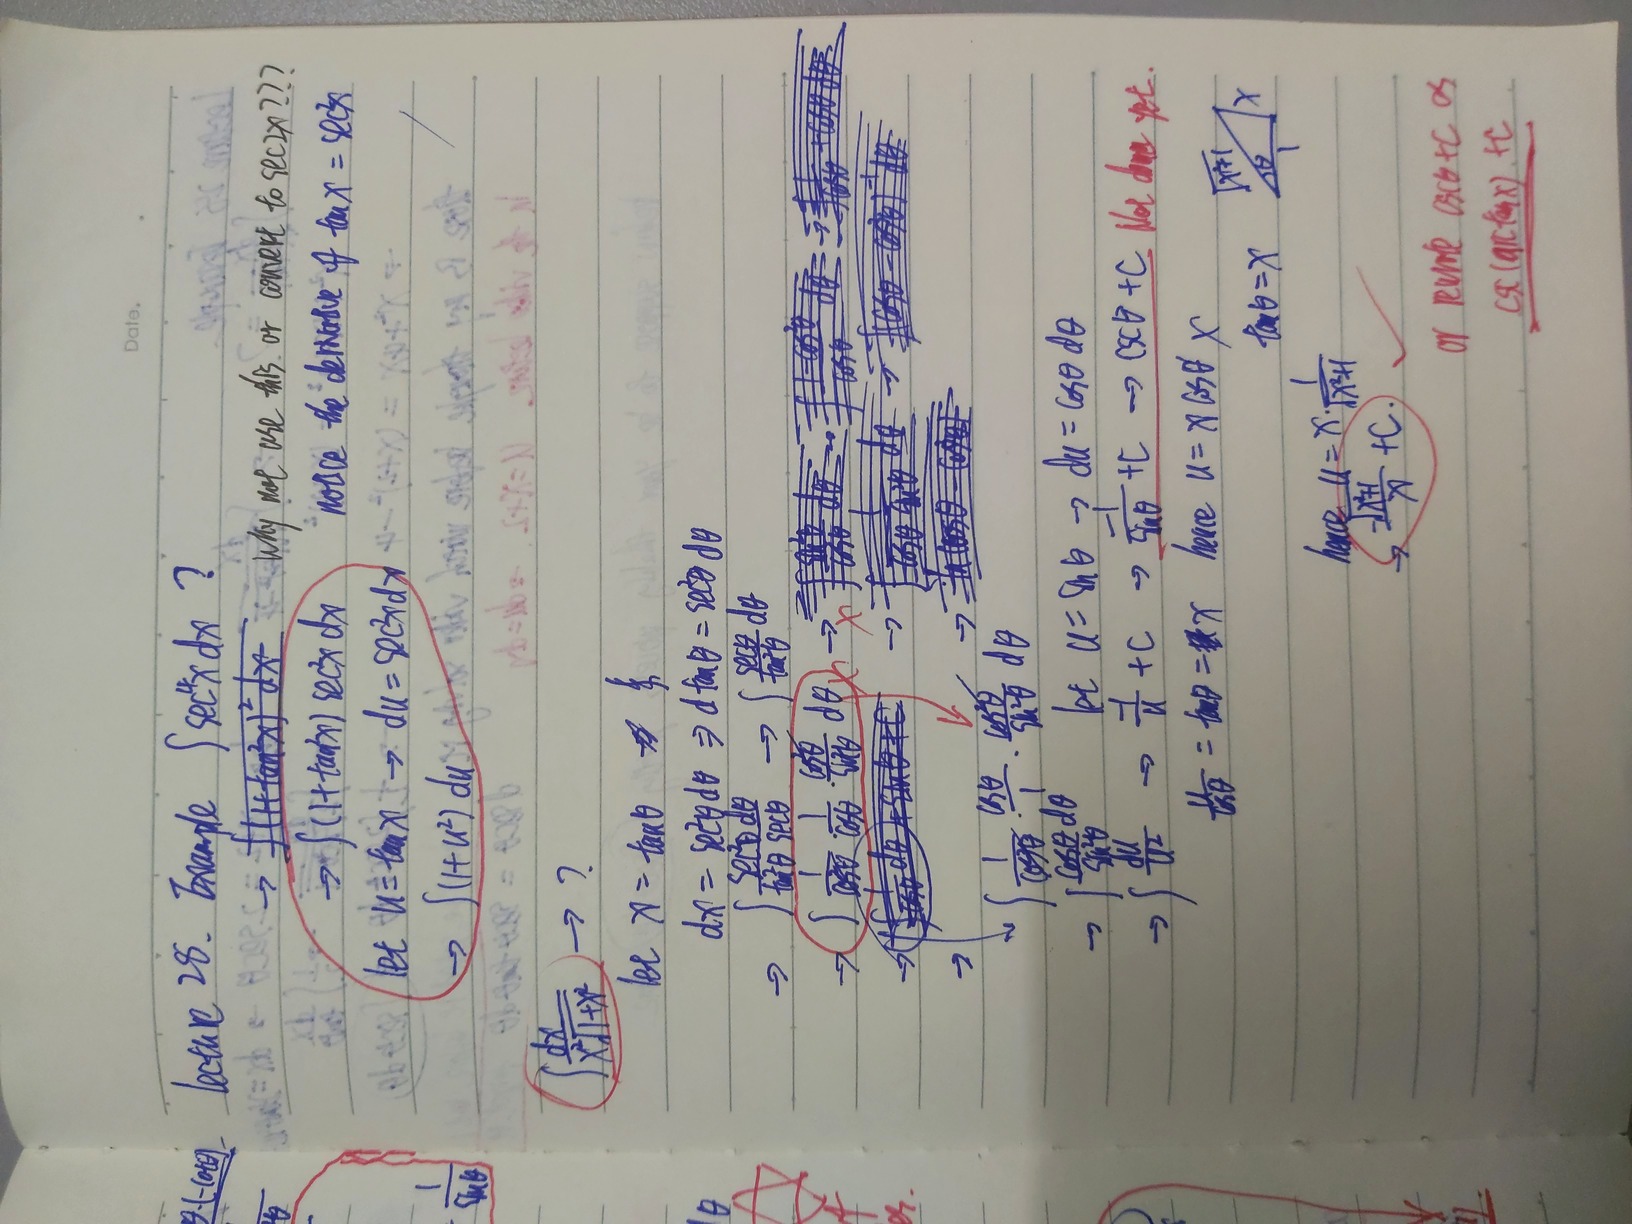 Date.
Lecture 28. Example ∫ sec⁴x dx ?
→ ∫(1+tan²x)² dx Why not use this or convert to sec2x???
→ ∫(1+tan²x) sec²x dx notice the derivative of tan x = sec²x
let u = tan x → du = sec²x dx
→ ∫(1+u²) du
∫ dx / x²√1+x² → ?
let x = tanθ ⇒
dx = sec²θ dθ ⇒ d tanθ = sec²θ dθ
→ ∫ sec²θ dθ / tan²θ secθ → ∫ secθ / tan²θ dθ
→ ∫ 1/cos²θ · 1/cosθ · cos²θ/sin²θ dθ X X → ∫ sin²θ/cosθ dθ → ∫ 1-cos²θ / cosθ dθ → ∫ 1/cosθ + cosθ dθ
→ ∫ 1/cosθ dθ + sinθ + C → ∫ 1 / cosθ sin²θ dθ → ∫(cosθ - cos³θ)⁻¹ dθ
→ → ln(cosθ - cos³θ)
∫ 1/cos²θ · cosθ/1 · cos²θ/sin²θ dθ
→ ∫ cosθ dθ / sin²θ let u = sinθ → du = cosθ dθ
→ ∫ du/u² → -1/u + C → -1/sinθ + C → cscθ + C Not done yet.
u/cosθ = tanθ = x hence u = x cosθ X
tanθ = x √x²+1 θ x 1
hence u = x · 1/√x²+1
→ -√x²+1 / x + C. ✓
or rewrite cscθ + C as
csc(arctan x) + C